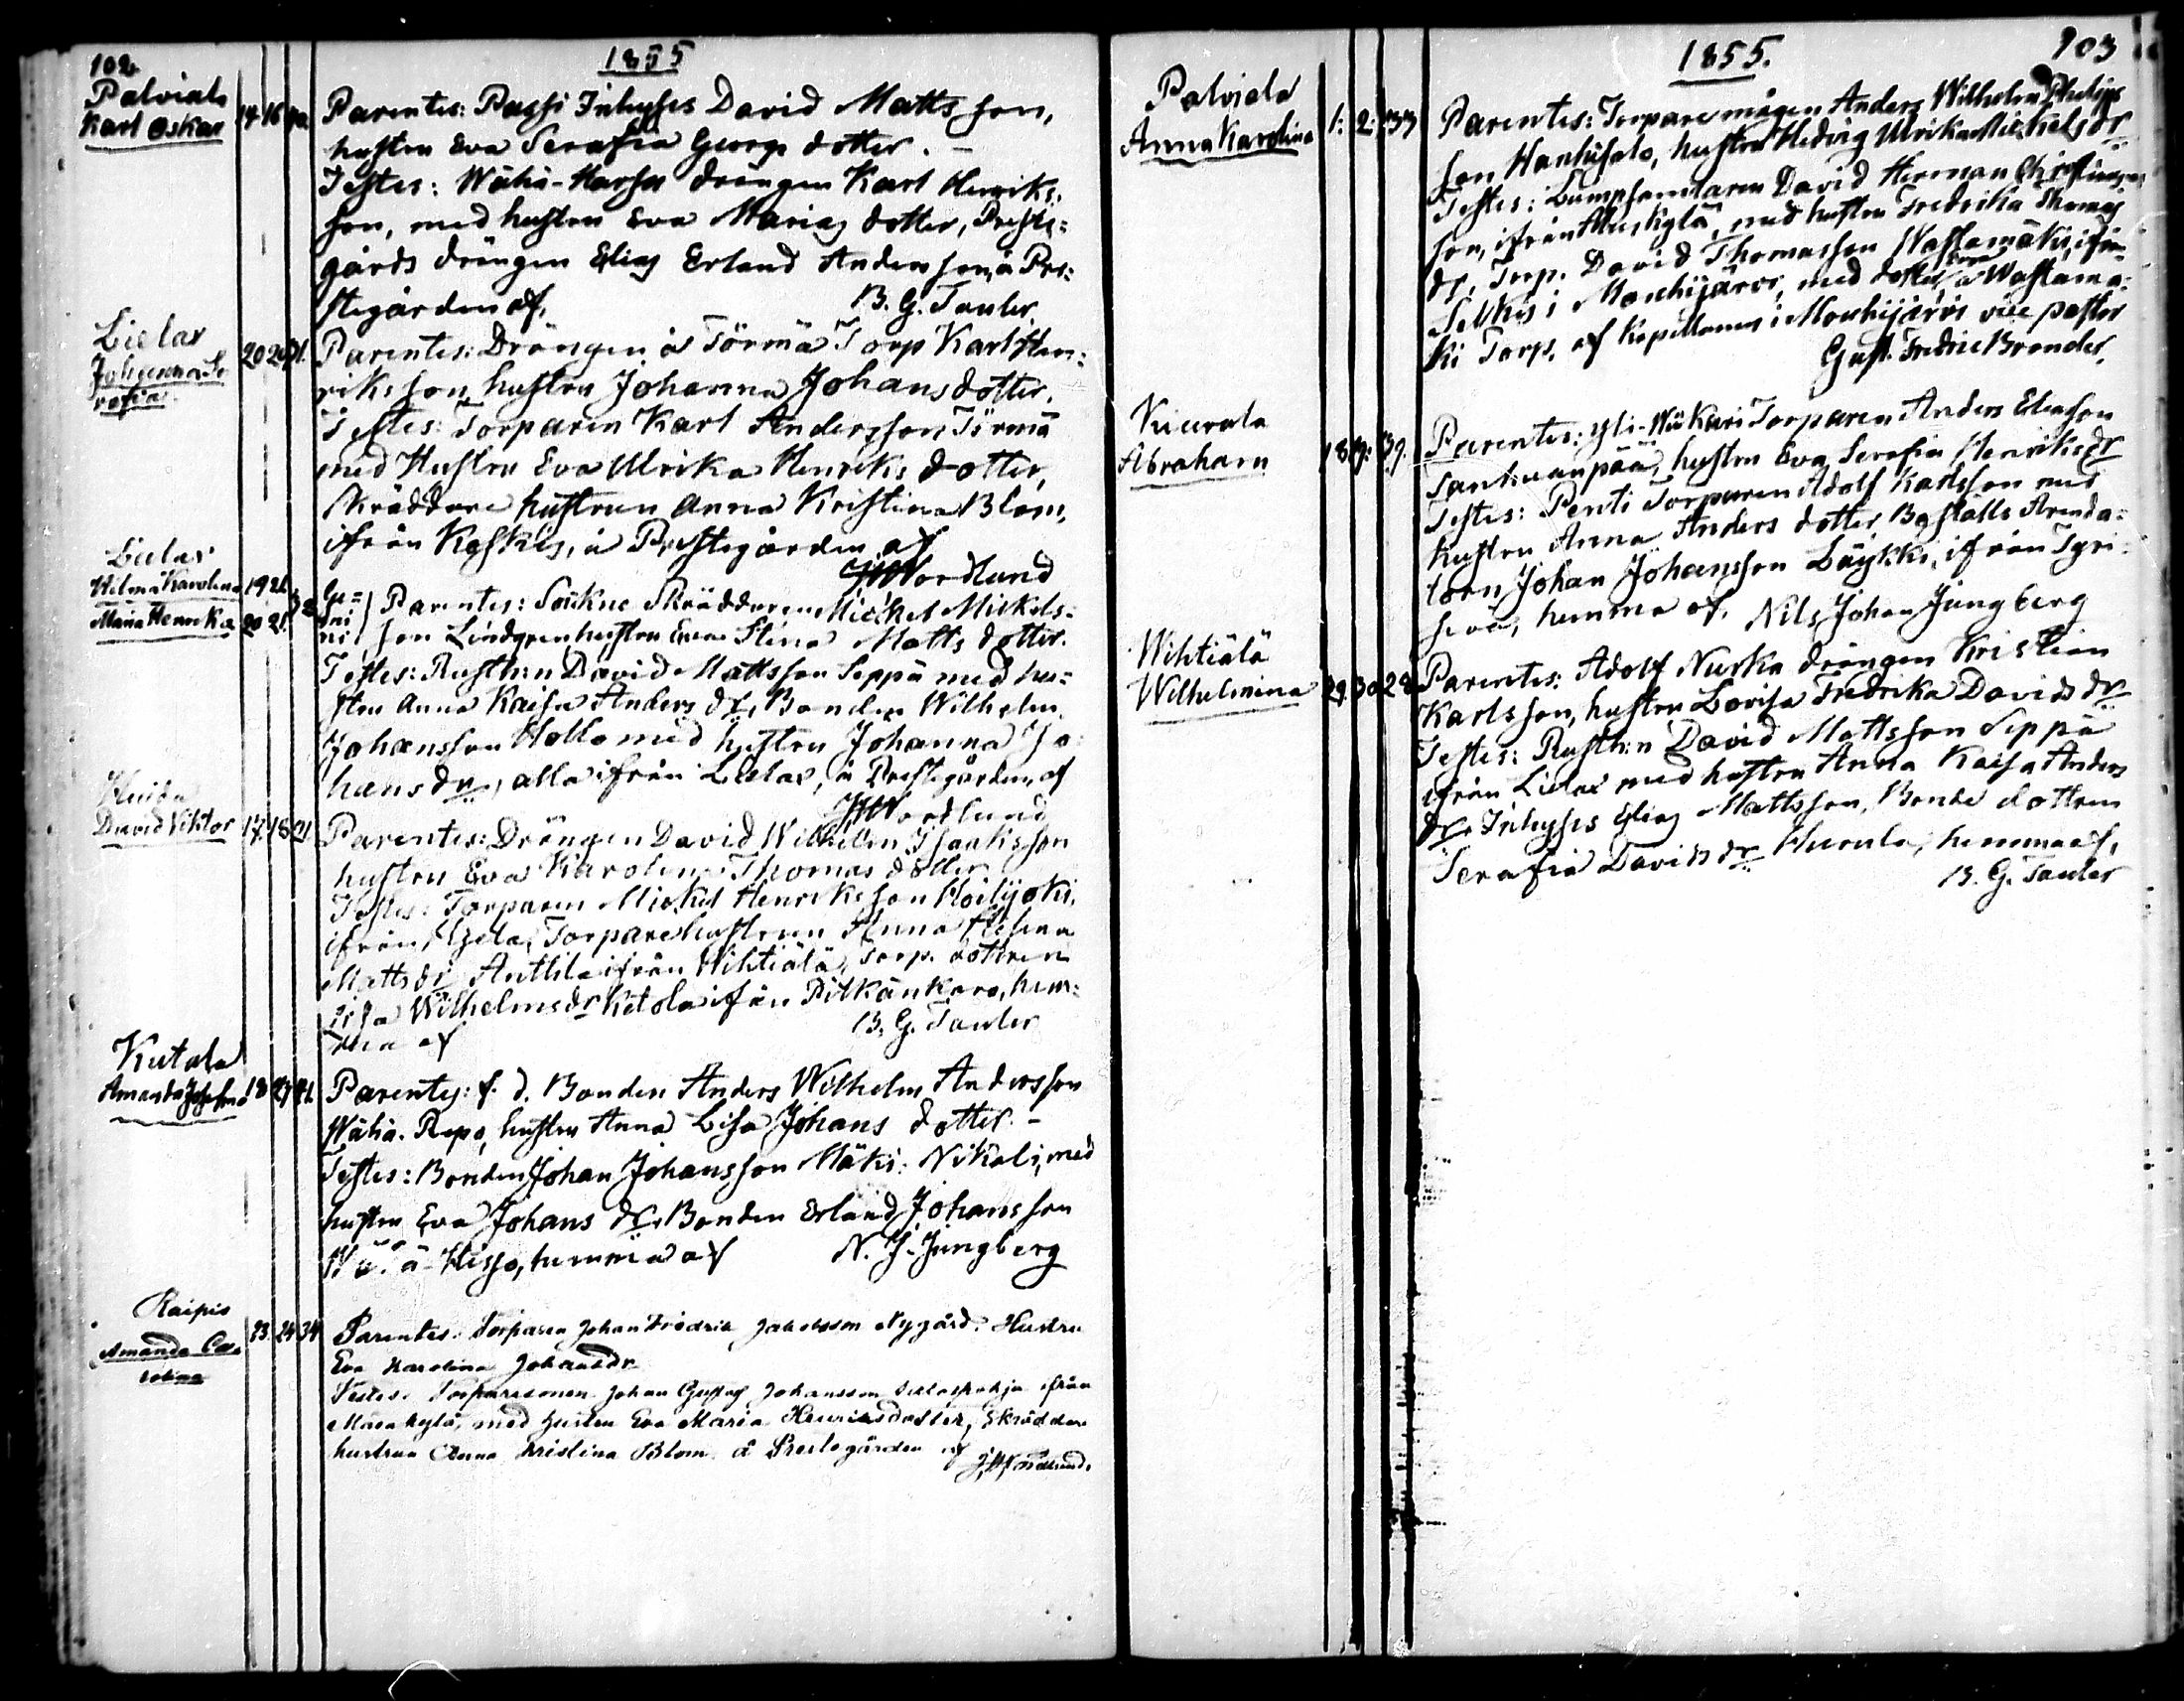 102
1855
Palviala
Karl Oskar
14 16
Parentes: Passi Inhyses David Matts son,
hustru Eva Serafia Georgs dotter. –
Testes: Wähä-Harja drängen Karl Henriks:
son, med hustru Eva Marias dotter, Preste=
gårds drängen Elias Erland Andersson, å Pre:
stegården af, B. G. Tauler.
Lielax
Johanna Se
rafia
20 20 21.
Parentes: Drängen å Törmä Torp Karl Hen:
riksson, hustru Johanna Johansdotter.
Testes: Torparen Karl Andersson Törmä
med Hustru Eva Ulrika Henriks dotter,
Skräddare hustrun Anna Kristina Blom,
ifrån Koskis, å Prestegården af
JWNordlund
Lielax
Hilma Karolina 19 21
Maria Henrika 20 21
Ge=
mi
ni
Parentes: Sockne Skräddaren Mickel Mickels:
son Lindgren, hustru Eva Stina Matts dotter.
Testes: Rusth:n David Mattsson Seppä med hu=
stru Anna Kaisa Anders dr, Bonden Wilhelm
Johansson Hollo med hustru Johanna Jo
hans dr, alla ifrån Lielax, å Prestegården, af
JWNordlund
David Viktor 17. 18 21
Parentes: Drängen David Wilhelm Isaaksson
hustru Eva Karolina Thomas dotter
Testes: Torparen Mickel Henriksson Koilijoki,
ifrån, Torparehustrun Anna Helena
Mattsdr Anttila ifrån Wihtiälä, Torp. dottren
Wilhelmsdr Ketola ifrån Pitkänkoro, hem:
ma af B. G. Tauler
Kutala
Amanda Josefina 18 19 21.
Parentes: f. d. Bonden Anders Wilhelm Andersson
Wähä. Repo, hustru Anna Lisa Johans dotter. –
Testes: Bonden Johan Johansson Mäki: Nikali, med
hustru Eva Johans dr, Bonden Erland Johansson
Wähä-Hisso, hemma af N. J. Jungberg
Raipio
Amanda Ca
rolina
23. 24 34
Parentes. Torparen Johan Fredrik Jakobsson Nygård. Hustru
Eva Karolina Johansdr
Testes. Torparesonen Johan Gustaf Johansson ifrån
med hustru Eva Maria Henriksdotter, Skräddare
hustrun Anna Kristina Blom å Prestegården af JWNordlund.
1855.
103
Palviala
Anna Karolina
1: 2: 33
Parentes: Torparemågen Anders Wilhelm Philips
son Hanhisalo, hustru Hedvig Ulrika Mickels dr
Testes: Lumpsamlaren David Herman Christians
son, ifrån, med hustru Fredrika Thomas
dr, Torp. David Thomasson Wastamäki, ifrån
Selkis i Mouhijärvi, med dotter Eva å Wastamä:
ki Torp. af Kapellanen i Mouhijärvi vice pastor
Gust. Fredric Brander.
Kiurala
Abraham
18 19: 39.
Parentes: Yli-Wiikari Torparen Anders Eliasson
Santanpää, hustru Eva Serafia Henriksdr
Testes: Penti Torparen Adolf Karlsson med
hustru Anna Anders dotter, Boställs Arenda=
torn Johan Johansson Läykki, ifrån Tyri=
sevä, hemma af. Nils Johan Jungberg
Wihtiälä
Wilhelmina
29. 30 28
Parentes: Adolf Nurka drängen Kristian
Karlsson, hustru Lovisa Fredrika Davids dr
Testes: Rusth:n David Mattsson Seppä
ifrån Lielax med hustru Anna Kaisa Anders
dr, Inhyses Elias Mattsson, Bonde dottren
Serafia Davids dr Hurula, hemma af,
B. G. Tauler